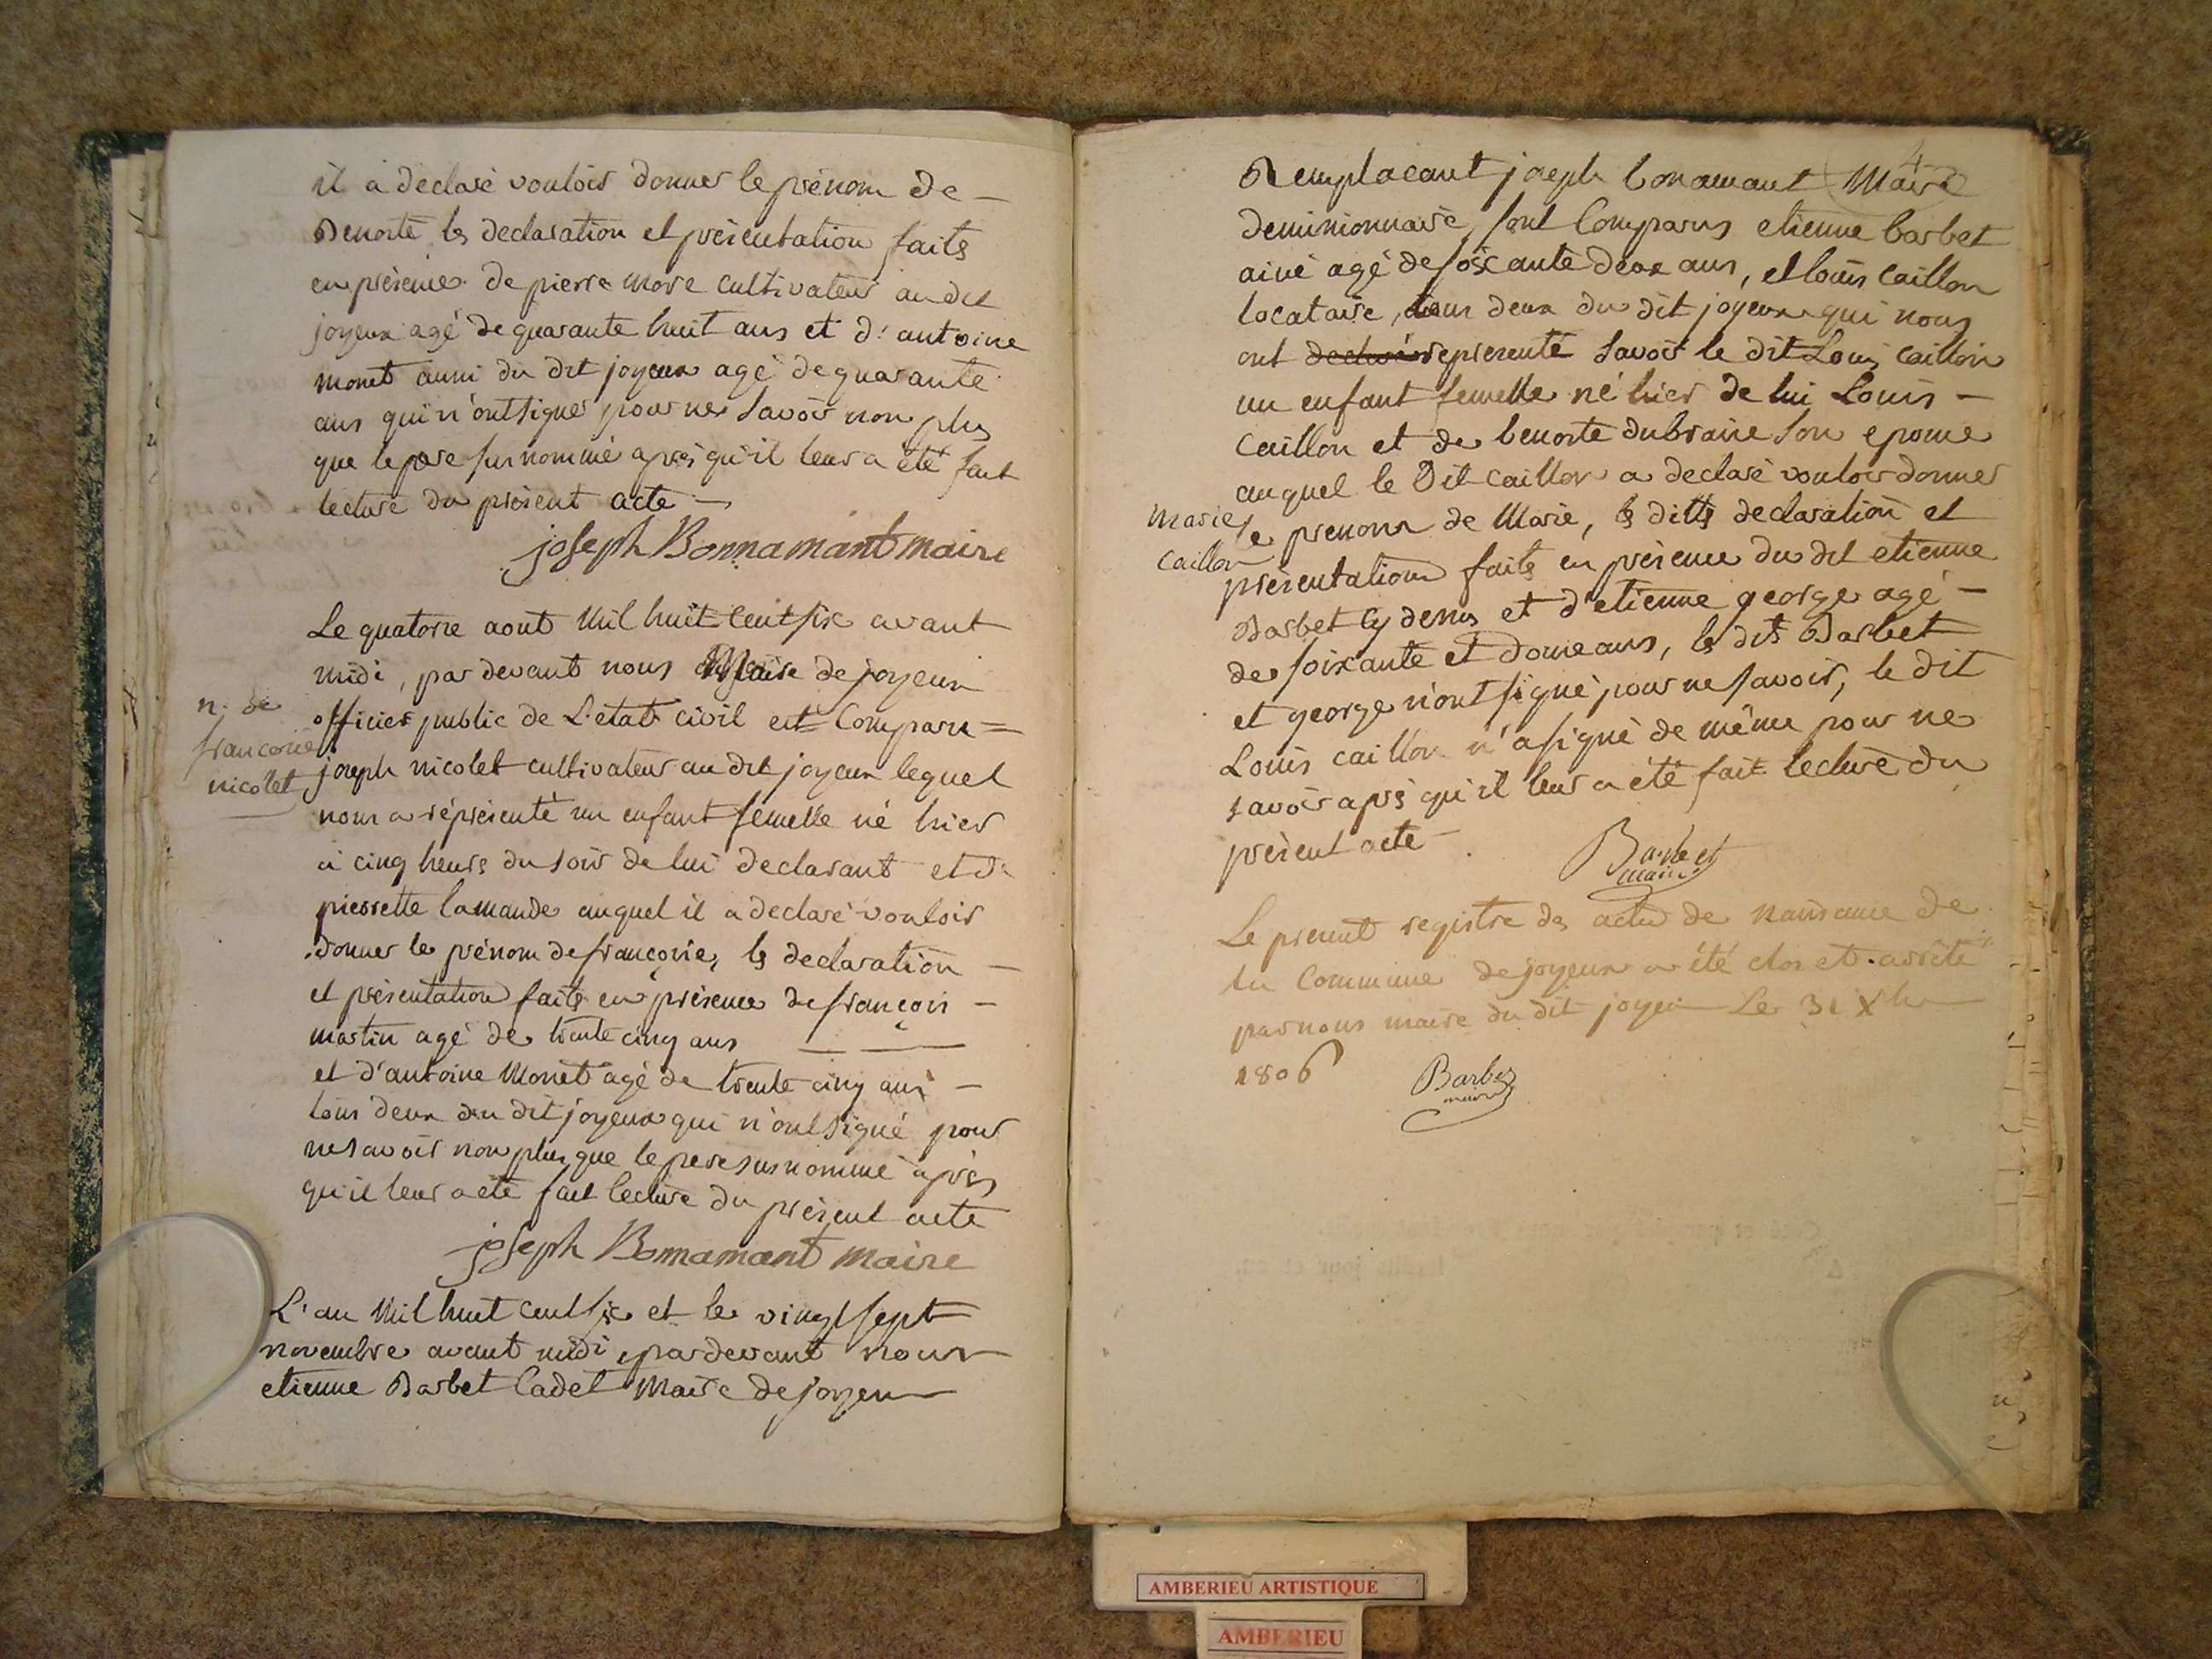 il a declaré vouloir donner le prénom de —
Benoite les declaration et présentation faits
en présence de pierre more cultivateur au dit
joyeux agé de quarante huit ans et d'antoine
monet aussi du dit joyeux agé de quarante
ans qui n'ont signer pour ne savoir non plus
que le pere surnommé après qu'il leur a été fait
lecture du présent acte —
joseph Bonnamant maire
Le quatorze aout mil huit cent six avant
midi, par devant nous Maire de joyeux
officier public de L'etat civil est Comparu =
n. de
francoise
nicolet
joseph nicolet cultivateur au dit joyeux lequel
nous a réprésenté un enfant femelle né hier
a cinq heurs du soir de lui declarant et de
pierrette lamande auquel il a declaré vouloir
donner le prénom de françoise, les declaration —
et présentation faits en présence de françois —
martin agé de trente cinq ans — —
et d'antoine Monet agé de trente cinq ans —
tous deux du dit joyeux qui n'ont signé pour
ne savoir non plus que le pere susnommé après
qu'il leur a été fait lecture du présent acte
joseph Bonnamant maire
L'an mil huit cent six et le vingt sept
novembre avant midi pardevant nous
etienne Barbet Cadet Maire de joyeux
4
Remplacant joseph bonamant Maire
demissionnaire sont Comparus etienne barbet
ainé agé de soixante deux ans, et louis caillon
locataire, tous deux du dit joyeux qui nous
ont declaré representé savoir le dit Louis caillon
un enfant femelle né hier de lui Louis —
caillon et de benoite dubraire son epouse
auquel le Dit caillon a declaré vouloir donner
marie
caillon
le prenom de Marie, les dittes declaration et
présentation faits en présence du dit etienne
Barbet cy dessus et d'etienne george agé —
de soixante et douze ans, les dits Barbet
et george n'ont signé pour ne savoir, le dit
Louis caillon n'a signé de même pour ne
savoir après qu'il leur a été fait lecture du
présent acte —
Barbet
maire
Le present registre des actes de naissance de
la Commune de joyeux a été clos et arrêté
par nous maire du dit joyeux Le 31 Xbre
1806
Barbet
maire
AMBERIEU ARTISTIQUE
AMBERIEU